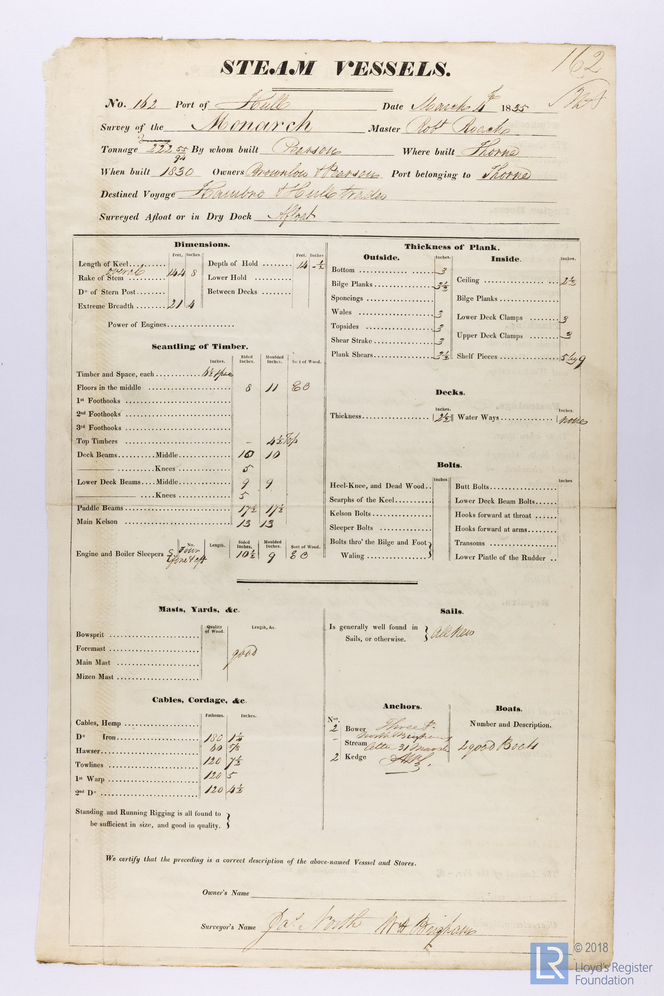 162
STEAM VESSELS.
No. 162 Port of Hull Date March 4th 1835
Survey of the Monarch Master Robt Roach
Tonnage 222 55/94 By whom built Pearson Where built Thorne
When built 1830 Owners Brownlow & Pearson Port belonging to Thorne
Destined Voyage Hambro & Hull trader
Surveyed Afloat or in Dry Dock Afloat
Dimensions.
Feet. Inches Feet. Inches
Length of Keel Depth of Hold 14
Rake of Stem overall 144 8 Lower Hold
Do of Stern Post Between Decks
Extreme Breadth 21 4
Power of Engines
Thickness of Plank.
Outside. Inside.
Inches. Inches.
Bottom 3 Ceiling 2½
Bilge Planks 3½ Bilge Planks
Sponcings Lower Deck Clamps 3
Wales 3 Upper Deck Clamps 3
Topsides 3 Shelf Pieces 5 by 9
Shear Strake 3
Plank Shears 2½
Scantling of Timber.
Sided Inches. Moulded Inches. Sort of Wood.
Timber and Space, each Inches.
Floors in the middle 8 11 EO
1st Foothooks
2nd Foothooks
3rd Foothooks
Top Timbers - 4½ top
Deck Beams Middle 10 10
Knees 5
Lower Deck Beams Middle 9 9
Knees 5
Paddle Beams 17½ 17½
Main Kelson 13 13
No. Length. Sided Inches. Moulded Inches. Sort of Wood.
Engine and Boiler Sleepers Four fore & aft 10½ 9 EO
Decks.
Inches. Inches.
Thickness 2½ Water Ways none
Bolts.
Inches Inches
Heel-Knee, and Dead Wood Butt Bolts
Scarphs of the Keel Lower Deck Beam Bolts
Kelson Bolts Hooks forward at throat
Sleeper Bolts Hooks forward at arms
Bolts thro' the Bilge and Foot Waling Transoms
Lower Pintle of the Rudder
Masts, Yards, &c.
Quality of Wood. Length, &c.
Bowsprit
Foremast good
Main Mast
Mizen Mast
Sails.
Is generally well found in
Sails, or otherwise. } All New
Cables, Cordage, &c.
Fathoms. Inches.
Cables, Hemp
Do Iron 180
Hawser 90 7½
Towlines 120 7½
1st Warp 120 5
2nd Do 120 4½
Standing and Running Rigging is all found to
be sufficient in size, and good in quality.
Anchors.
Nos.
2 Bower
- Stream
2 Kedge
Boats.
Number and Description.
2 good Boats
We certify that the preceding is a correct description of the above-named Vessel and Stores.
Owner's Name
Surveyor's Name Jas North Wm Bingham
LR © 2018
Lloyd's Register
Foundation